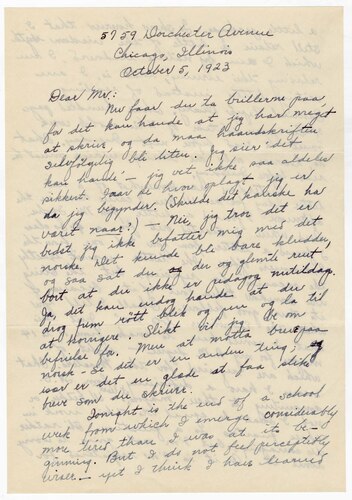 5759 Dorchester Avenue
Chicago, Illinois
October 5, 1923
Dear Mr:
Nu faar du ta brillerne paa
for det kan hande at jeg har meget
at skrive og da maa haandskriften
selvfølgelig bli liten. Jeg sier "det
kan hande" — jeg vet ikke saa aldeles
sikkert. Jaar de hvor oplagt jeg er
da jeg begynder. (Skulde det kanske ha
været naar?) — Nei, jeg tror det er
bedst jeg ikke befatter mig med det
norske. Det kunde bli bare kludder,
og saa sat du der og glemte rent
bort at du ikke er pedagog
Ja, det kan endog hande at du
drog frem rött blek og pen og la til
at korrigere. Slikt vil jeg be om
for. Men at motta brev paa
norsk - se det er en anden ting; og
var er det en glede at faa slike
breve som du skriver.
Tonight is the end of a school
week from which I emerge considerably
more tired than I was at its be-
ginning. But I do not feel perceptibly
wiser — yet I think I have learned